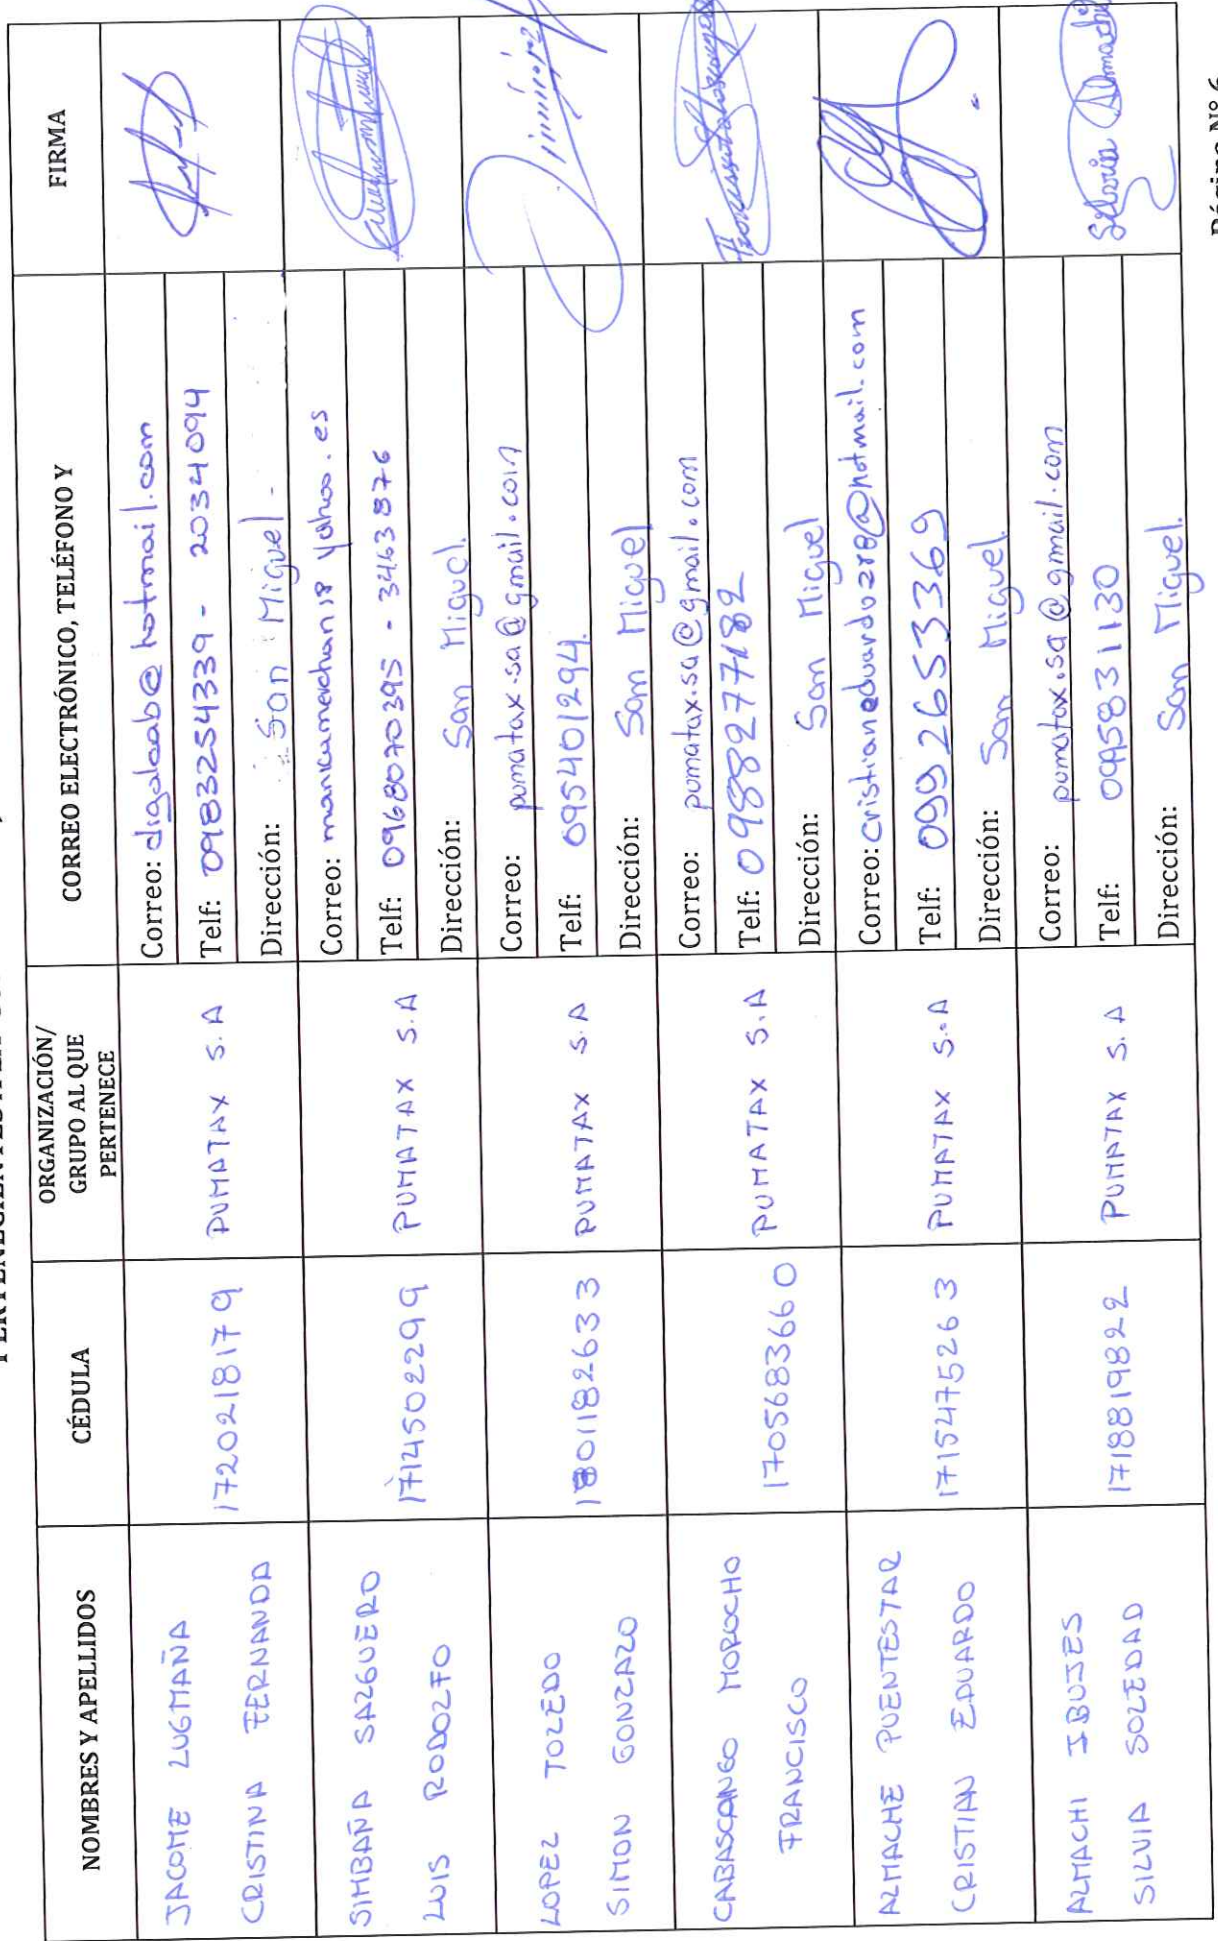 NOMBRES Y APELLIDOS
CÉDULA
ORGANIZACIÓN/
GRUPO AL QUE
PERTENECE
CORREO ELECTRÓNICO, TELÉFONO Y
FIRMA
JACOME LUGMAÑA
CRISTINA FERNANDA
1720218179
PUMATAX S.A
Correo: digalaab@hotmail.com
Telf: 0983254339 - 2034094
Dirección: San Miguel -
SIMBAÑA SALGUERO
LUIS RODOLFO
1714502299
PUMATAX S.A
Correo: manicamerchan18 yahoo.es
Telf: 0968070395 - 3463876
Dirección: San Miguel.
LOPEZ TOLEDO
SIMON GONZALO
1801182633
PUMATAX S.A
Correo: pumatax.sa@gmail.com
Telf: 095401294.
Dirección: San Miguel
CABASCANGO MOROCHO
FRANCISCO
1705683660
PUMATAX S.A
Correo: pumatax.sa@gmail.com
Telf: 0988277182
Dirección: San Miguel
ALMACHE PUENTESTAR
CRISTIAN EDUARDO
1715475263
PUMATAX S.A
Correo: cristianeduardo2r8@hotmail.com
Telf: 0992653369
Dirección: San Miguel
ALMACHI IBUJES
SILVIA SOLEDAD
1718819822
PUMATAX S.A
Correo: pumatax.sa@gmail.com
Telf: 0995831130
Dirección: San Miguel.
Silvia Almachi
Página N° 6